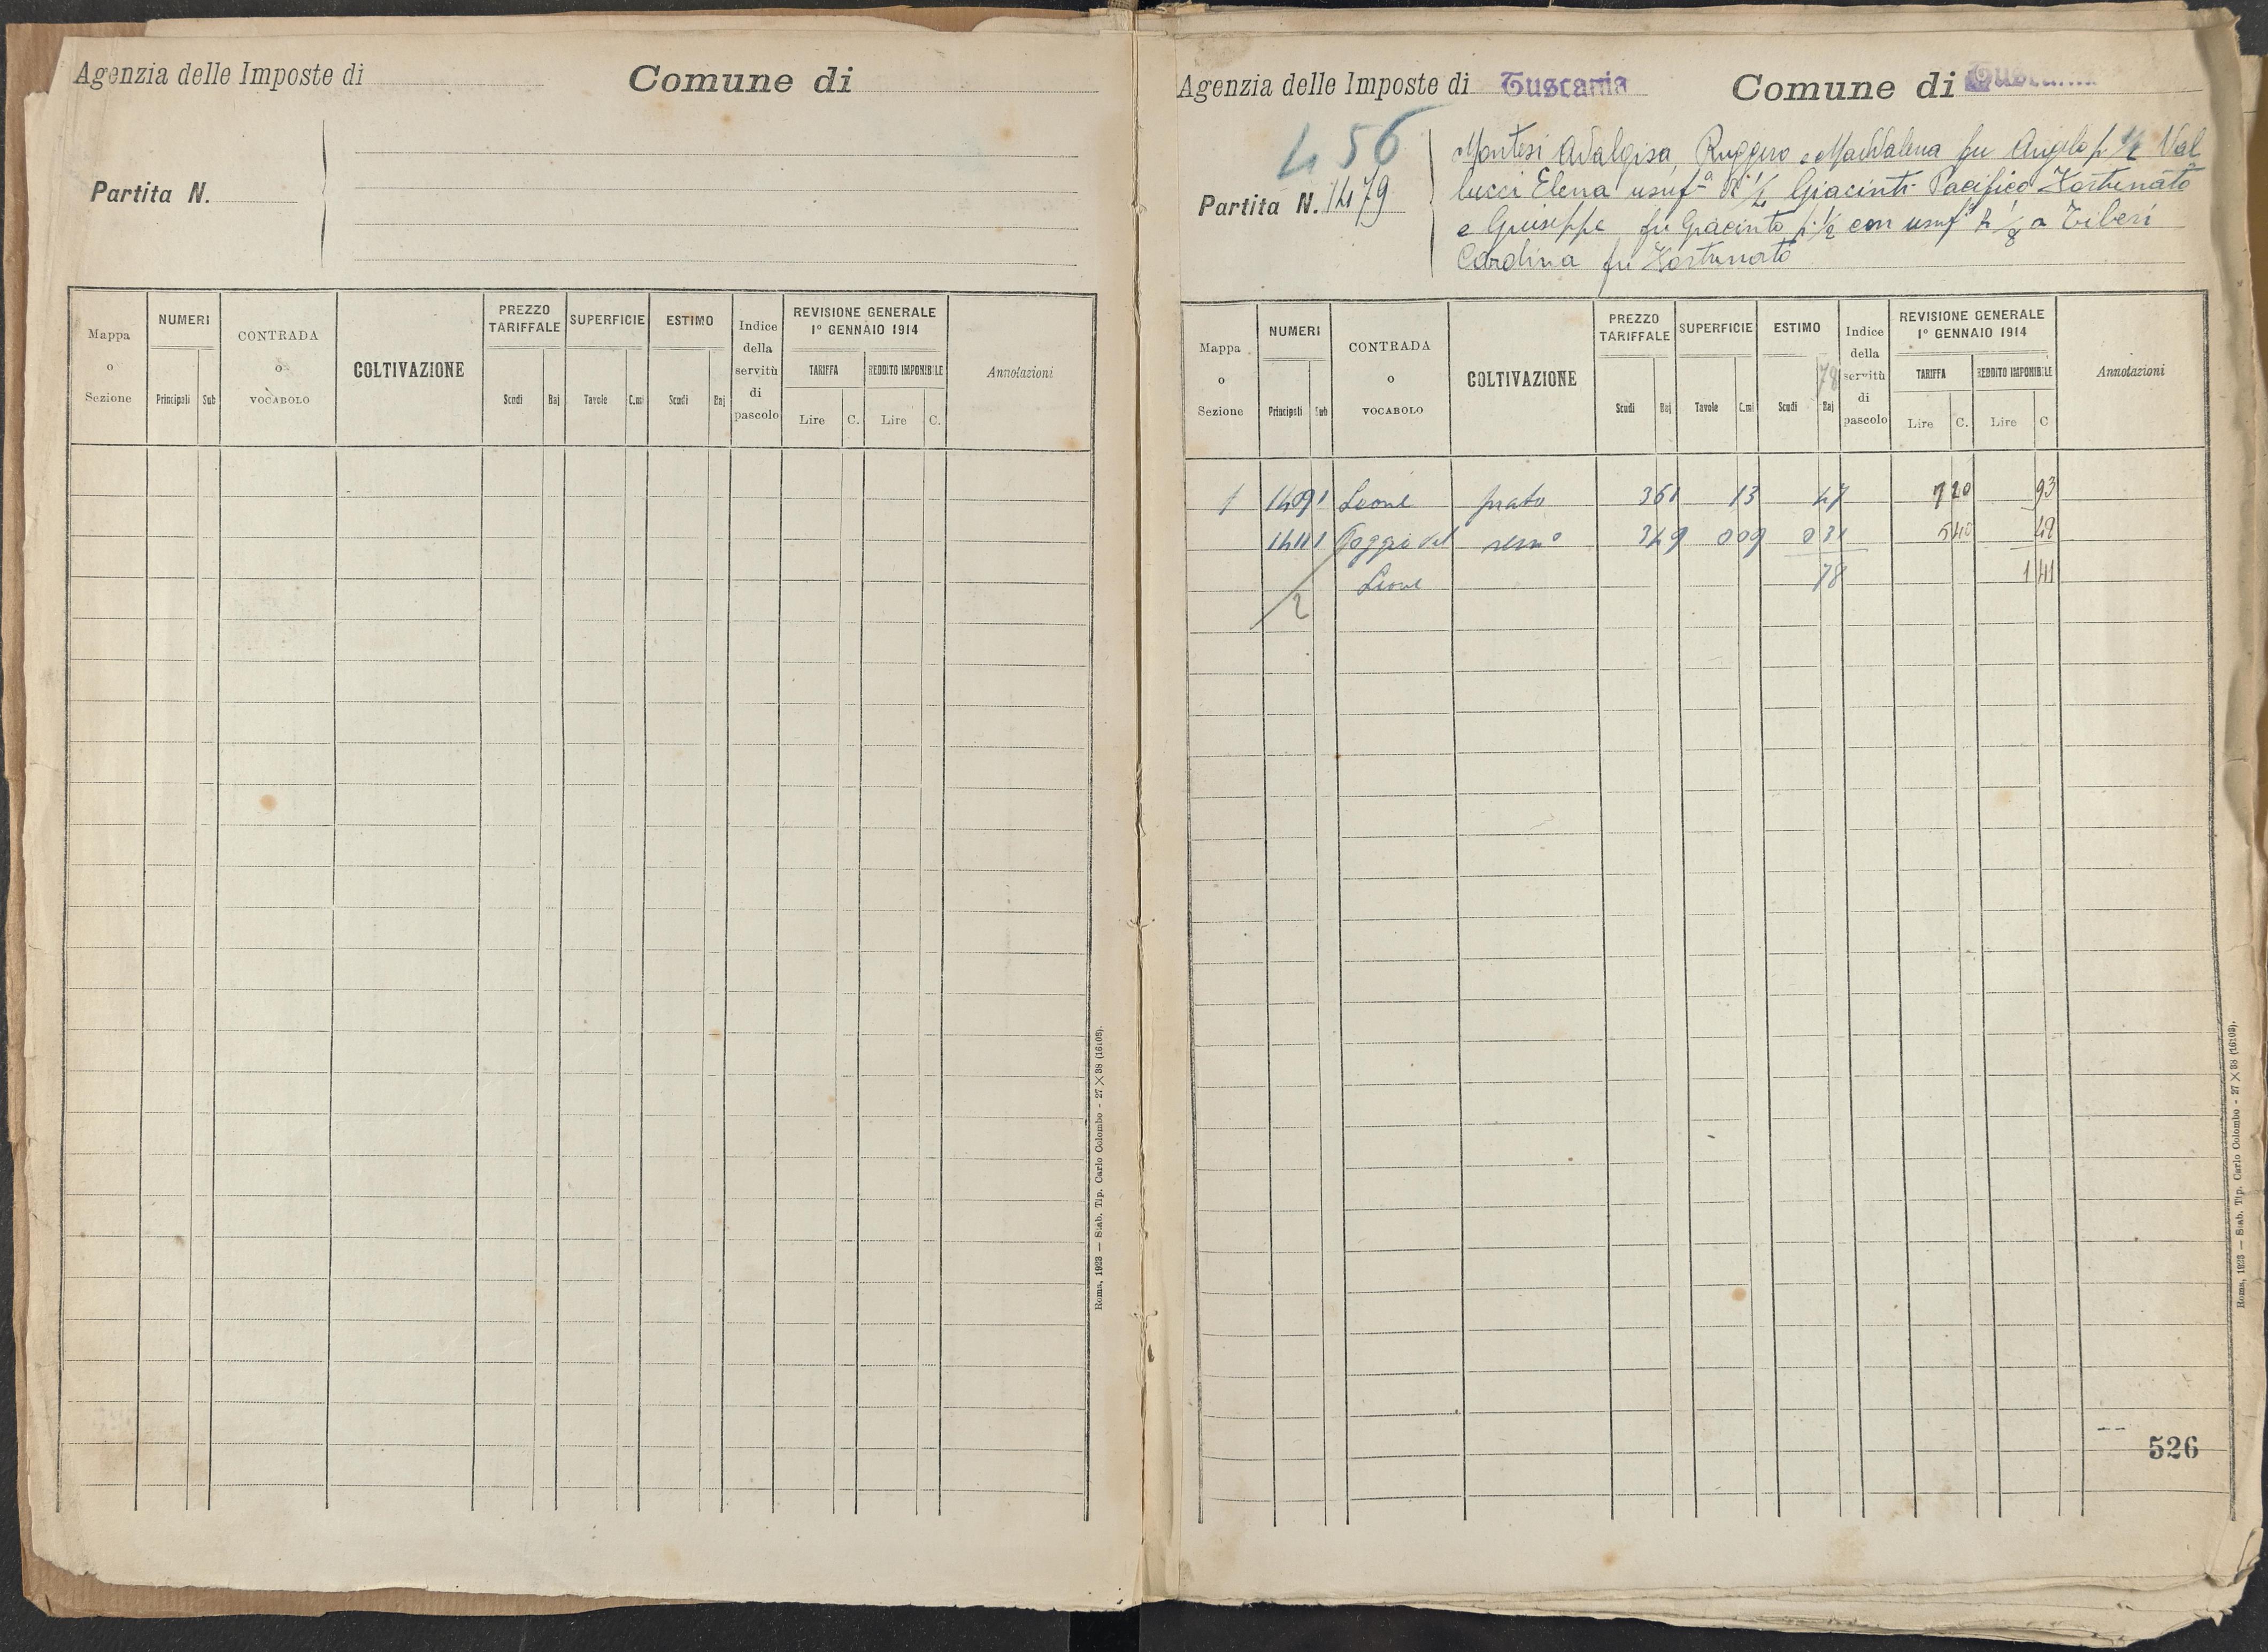 Agenzia delle Imposte di
Comune di
Partita N.
Mappa o Sezione
NUMERI
Principali Sub
CONTRADA o VOCABOLO
COLTIVAZIONE
PREZZO TARIFFALE
Scudi Baj
SUPERFICIE
Tavole C.mi
ESTIMO
Scudi Baj
Indice della servitù di pascolo
REVISIONE GENERALE
1° GENNAIO 1914
TARIFFA
Lire C.
REDDITO IMPONIBILE
Lire C.
Annotazioni
Roma, 1923 — Stab. Tip. Carlo Colombo - 27 × 38 (16103).
Agenzia delle Imposte di Tuscania
Comune di Tuscania
456
Partita N. 1479
Montesi Adalgisa Ruggero e Maddalena fu Angelo p. 1/2 Val
lucci Elena usuf.a di 1/4 Giacinti Pacifico Fortunato
e Giuseppe fu Giacinto p. 1/2 con usuf. di 1/8 a Tiberi
Carolina fu Fortunato
Mappa o Sezione
NUMERI
Principali Sub
CONTRADA o VOCABOLO
COLTIVAZIONE
PREZZO TARIFFALE
Scudi Baj
SUPERFICIE
Tavole C.mi
ESTIMO
78
Scudi Baj
Indice della servitù di pascolo
REVISIONE GENERALE
1° GENNAIO 1914
TARIFFA
Lire C.
REDDITO IMPONIBILE
Lire C
Annotazioni
1 1409 1 Leone prato 361 13 47 7 20 93
1411 1 Poggio del sem.o 349 009 031 5 40 48
Leone 78 1 41
2
526
Roma, 1923 — Stab. Tip. Carlo Colombo - 27 × 38 (16103).